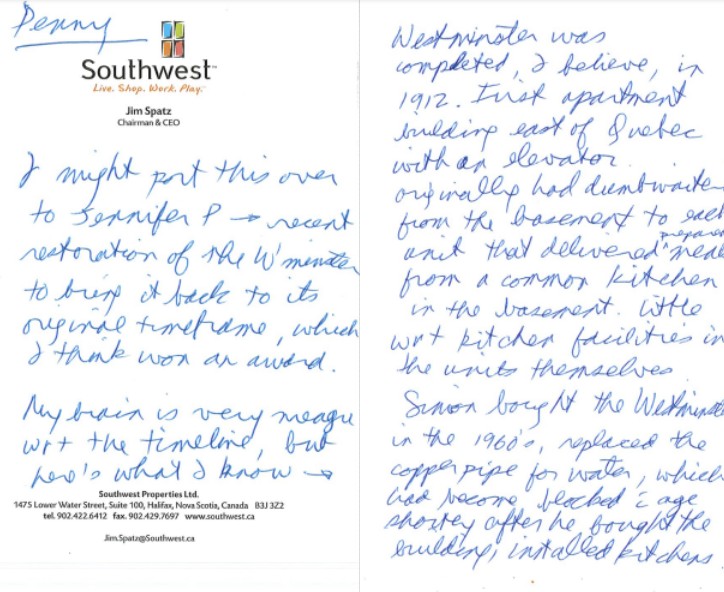 Penny
Southwest™
Live. Shop. Work. Play.™
Jim Spatz
Chairman & CEO
I might port this over
to Jennifer P → recent
restoration of the W'minster
to bring it back to its
original timeframe, which
I think won an award.
My brain is very meagre
wrt the timeline, but
here's what I know →
Southwest Properties Ltd.
1475 Lower Water Street, Suite 100, Halifax, Nova Scotia, Canada B3J 3Z2
tel. 902.422.6412 fax. 902.429.7697 www.southwest.ca
Jim.Spatz@Southwest.ca
Westminster was
completed, I believe, in
1912. First apartment
building east of Quebec
with an elevator.
originally had dumbwaiter
from the basement to each
unit that delivered ^prepared meals
from a common kitchen
in the basement. Little
wrt kitchen facilities in
the units themselves
Simon bought the Westminste
in the 1960's, replaced the
copper pipe for water, which
had become blocked c age
shortly after he bought the
building, installed kitchens